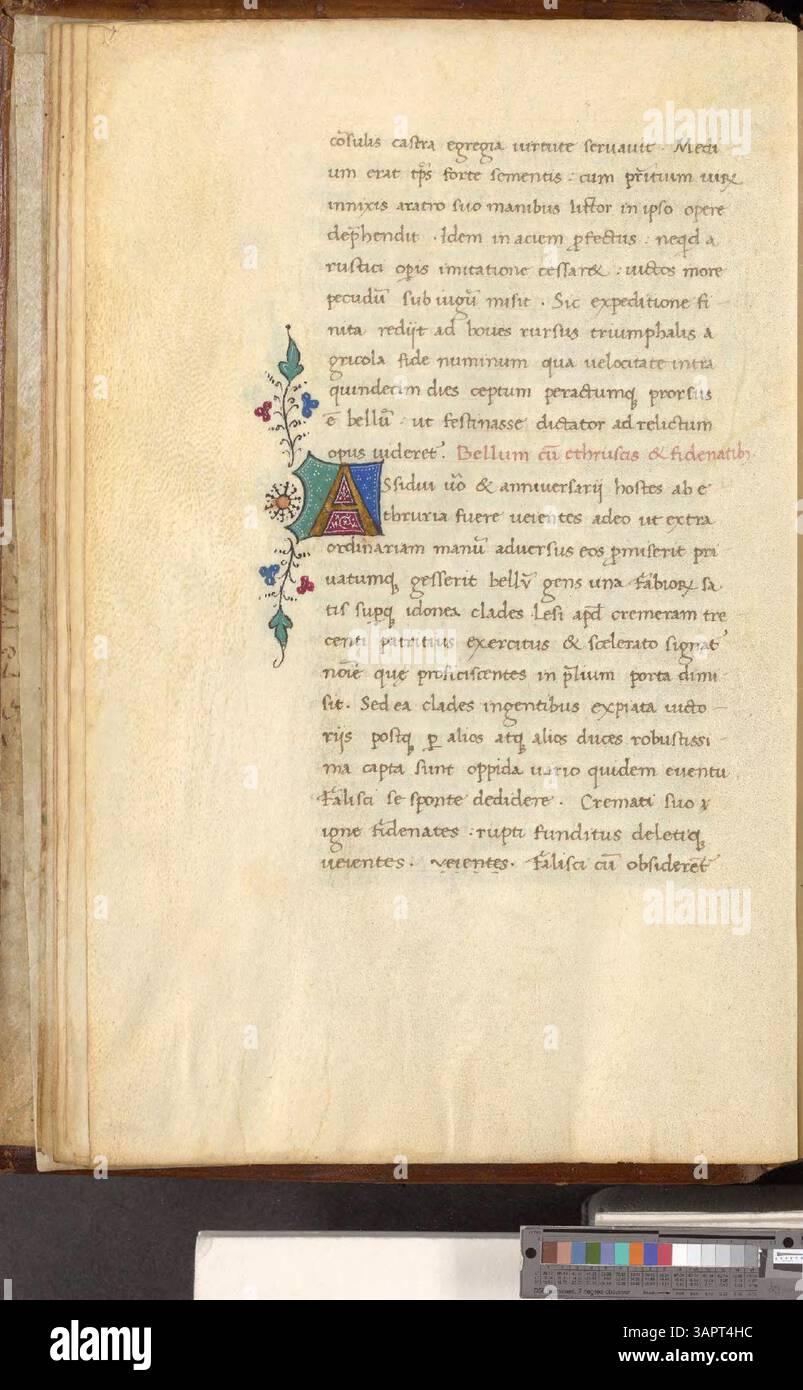 co̅sulis castra egregia uirtute seruauit · Medi
um erat tp̅s forte sementis : cum pr̅itium uirꝝ
innixis aratro suo manibus lictor in ipso opere
dep̅hendit · Idem in aciem ꝓfectus : neqd a
rustici oꝑis imitatione cessar& : uictos more
pecudu̅ sub iugu̅ misit · Sic expeditione fi
nita redijt ad boues rursus triumphalis a
gricola fide numinum qua uelocitate intra
quindecim dies ceptum peractumqꝫ prorsus
e̅ bellu̅ · ut festinasse dictator ad relictum
opus uideret᾽. Bellum cu̅ ethruscis & fidenatibꝫ
ASsidui uo̅ & anniuersarij hostes ab e
thruria fuere ueientes adeo ut extra
ordinariam manu̅ aduersus eos ꝓmiserit pri
uatumqꝫ gesserit bellu̅ gens una Fabioꝝ sa
tis suꝑqꝫ idonea clades · Lesi apd̅ cremeram tre
centi patritius exercitus & scelerato signat᾽
noi̅e quę proficiscentes in p̅lium porta dimi
sit. Sed ea clades ingentibus expiata uicto
rijs postqꝫ ꝑ alios atqꝫ alios duces robustissi
ma capta sunt oppida uario quidem euentu
Falisci se sponte dedidere. Cremati suo
igne Fidenates · rupti funditus deletiqꝫ
ueientes. ueientes. Falisci cu̅ obsidere̅t᾽
alamy
a
Image ID: 3APT4HC
www.alamy.com